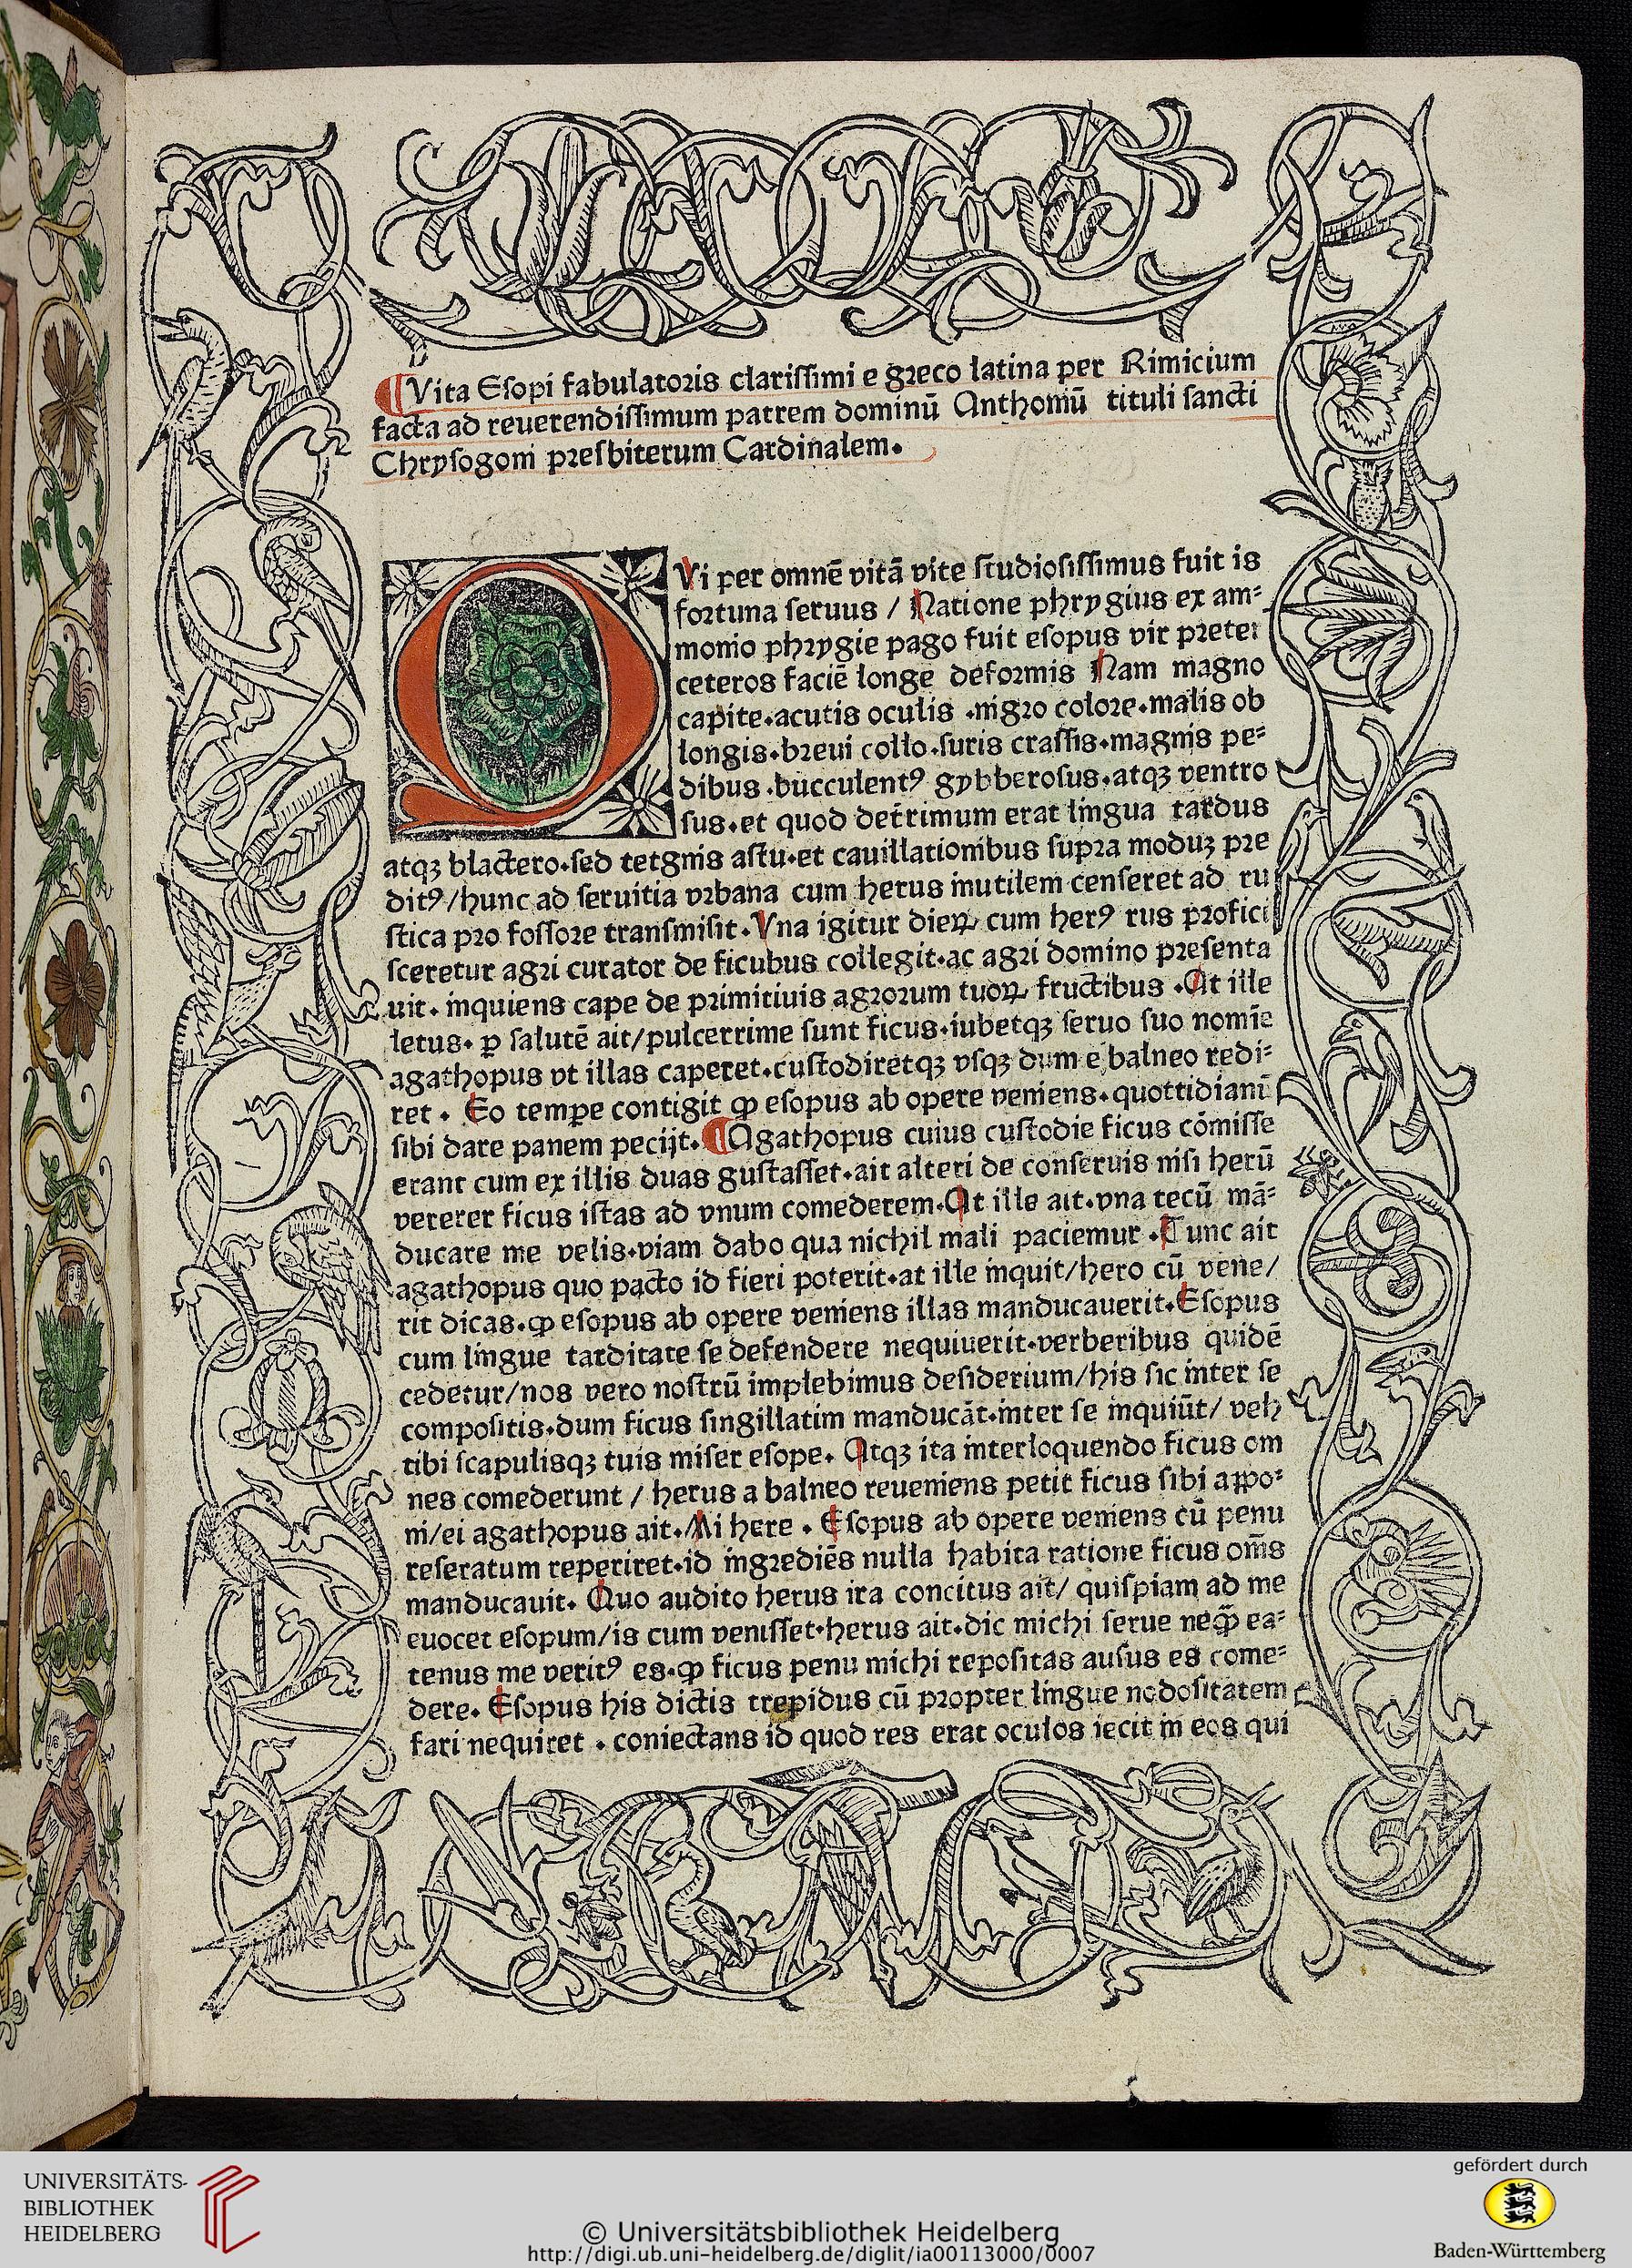 ¶Vita Esopi fabulatoris clarissimi e greco latina per Rimicium
facta ad reuerendissimum patrem dominū Anthoniū tituli sancti
Chrysogoni presbiterum Cardinalem.
QVi per omnē vitā vite studiosissimus fuit is
fortuna seruus / Natione phrygius ex am⸗
monio phrygie pago fuit esopus vir preter
ceteros faciē longe deformis Nam magno
capite.acutis oculis .nigro colore.malis ob
longis.breui collo.suris crassis.magnis pe⸗
dibus.bucculentꝰ gybberosus.atqꝫ ventro
sus.et quod detrimum erat lingua tardus
atqꝫ blactero.sed tetgnis astu.et cauillationibus supra moduꝫ pre
ditꝰ/hunc ad seruitia vrbana cum herus inutilem censeret ad ru
stica pro fossore transmisit.Vna igitur dieꝝ cum herꝰ rus profici
sceretur agri curator de ficubus collegit.ac agri domino presenta
uit. inquiens cape de primitiuis agrorum tuoꝝ fructibus .At ille
letus. ꝑ salutē ait/pulcerrime sunt ficus.iubetqꝫ seruo suo nomīe
agathopus vt illas caperet.custodiretqꝫ vsqꝫ dum e balneo redi⸗
ret . Eo tempe contigit ꝙ esopus ab opere veniens.quottidianū
sibi dare panem pecijt.¶Agathopus cuius custodie ficus cōmisse
erant cum ex illis duas gustasset.ait alteri de conseruis nisi herū
vererer ficus istas ad vnum comederem.At ille ait.vna tecū mā⸗
ducare me velis.viam dabo qua nichil mali paciemur .Tunc ait
agathopus quo pacto id fieri poterit.at ille inquit/hero cū vene/
rit dicas.ꝙ esopus ab opere veniens illas manducauerit.Esopus
cum lingue tarditate se defendere nequiuerit.verberibus quidē
cedetur/nos vero nostrū implebimus desiderium/his sic inter se
compositis.dum ficus singillatim manducāt.inter se inquiūt/ veh
tibi scapulisqꝫ tuis miser esope. Atqꝫ ita interloquendo ficus om
nes comederunt / herus a balneo reueniens petit ficus sibi appo⸗
ni/ei agathopus ait.Mi here . Esopus ab opere veniens cū penu
reseratum reperiret.id ingrediēs nulla habita ratione ficus om̄s
manducauit. Quo audito herus ira concitus ait/ quispiam ad me
euocet esopum/is cum venisset.herus ait.dic michi serue neqꝫ̄ ea⸗
tenus me veritꝰ es.ꝙ ficus penu michi repositas ausus es come⸗
dere. Esopus his dictis trepidus cū propter lingue nodositatem
fari nequiret . coniectans id quod res erat oculos iecit in eos qui
UNIVERSITÄTS-
BIBLIOTHEK
HEIDELBERG
© Universitätsbibliothek Heidelberg
http://digi.ub.uni-heidelberg.de/diglit/ia00113000/0007
gefördert durch
Baden-Württemberg